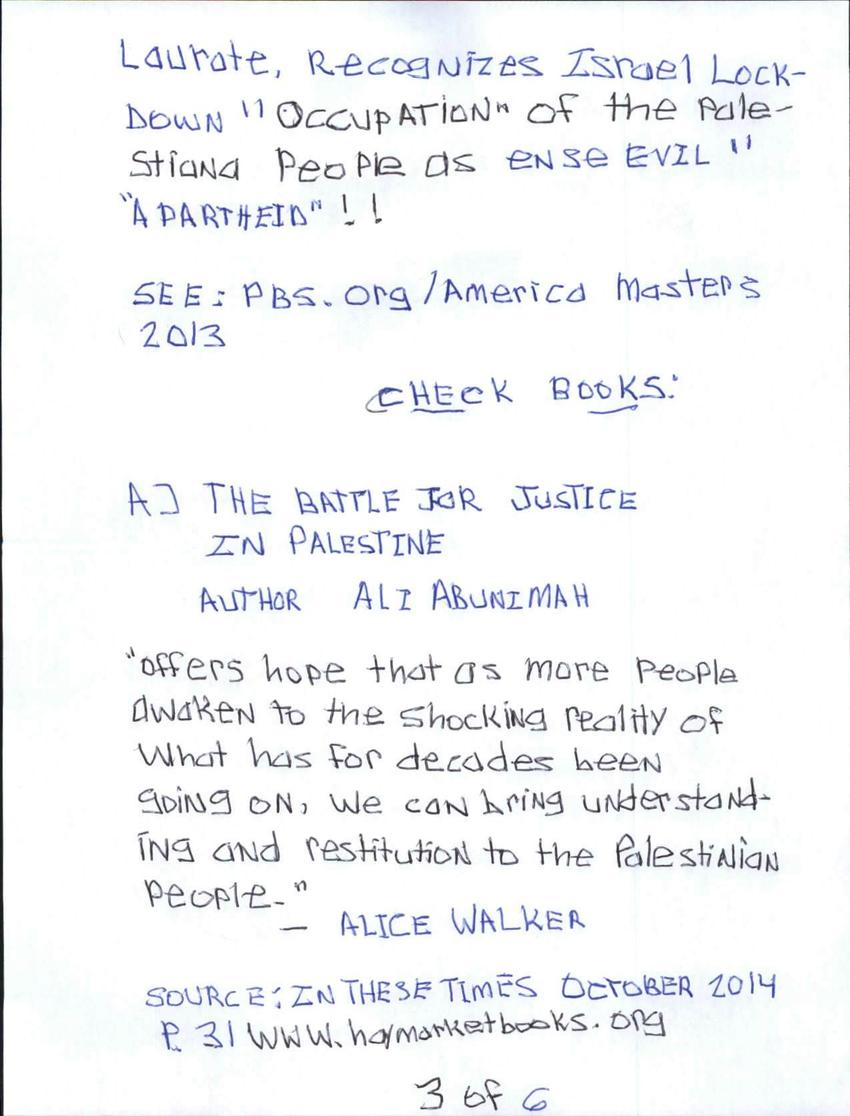 Laurate, Recognizes Israel Lock-
DOWN "OCCUPATION" of the Pale-
Stiana People as ENSE EVIL"
"APARTHEID"!!
SEE: PBS.org/America Masters
2013
CHECK BOOKS:
A] THE BATTLE FOR JUSTICE
IN PALESTINE
AUTHOR ALI ABUNIMAH
"offers hope that as more People
awaken to the shocking reality of
What has for decades been
going on, we can bring understand-
ing and restitution to the Palestinian
People."
— ALICE WALKER
SOURCE: IN THESE TIMES OCTOBER 2014
P. 31 WWW.haymarketbooks.org
3 of 6